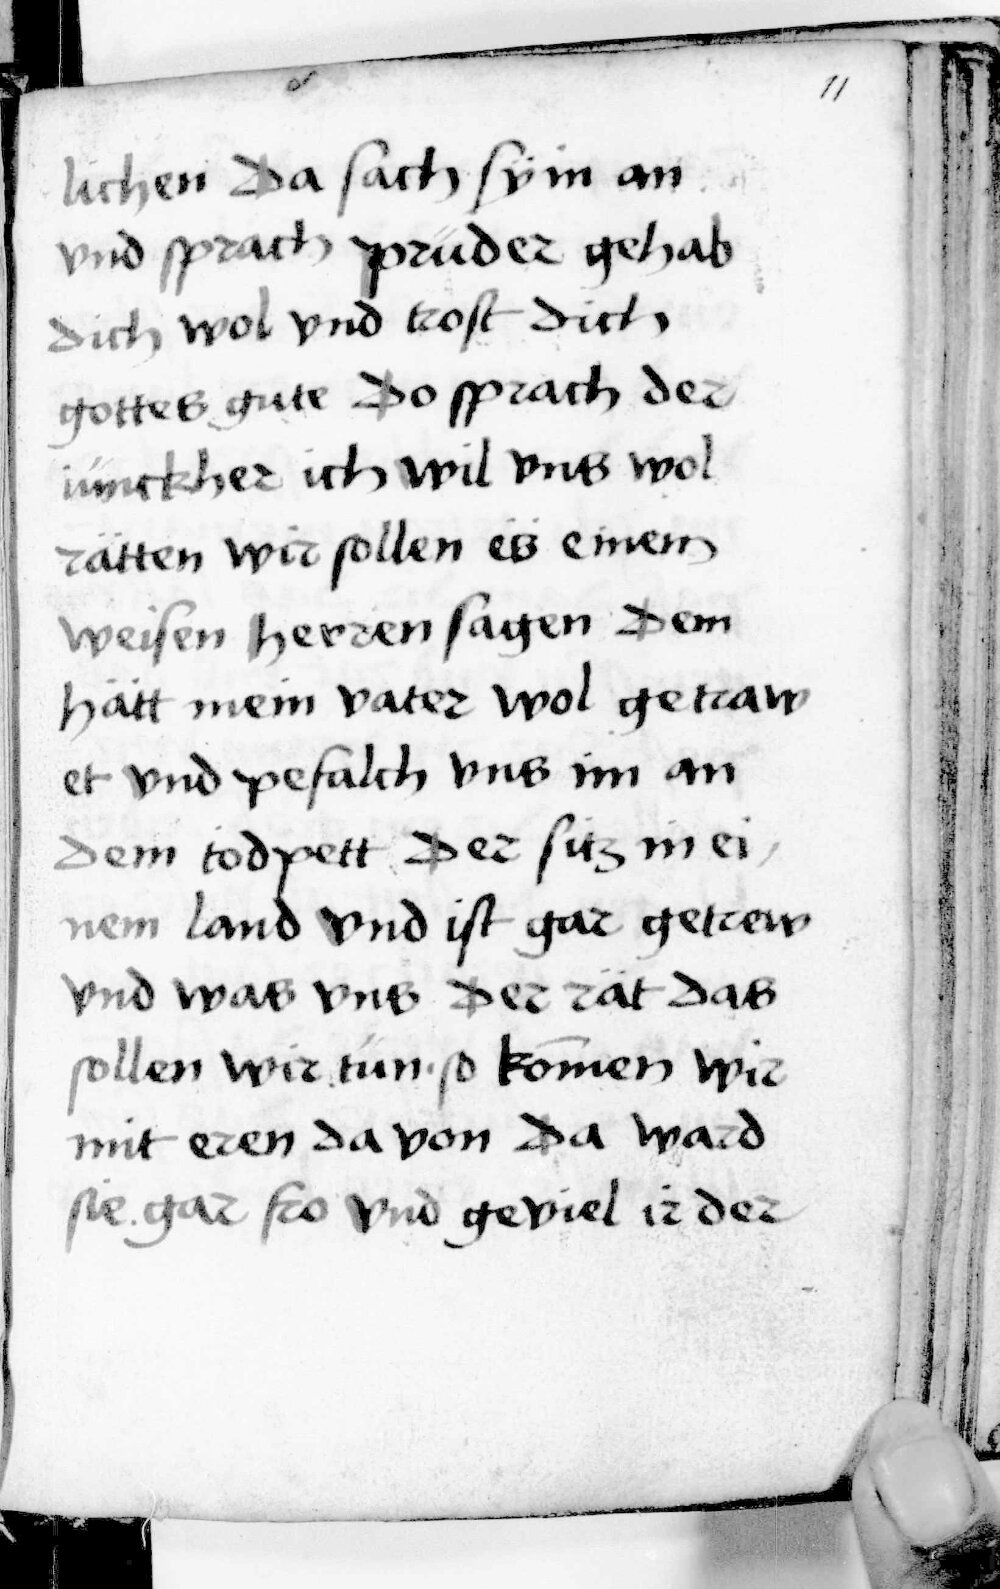 11
lichen Da sach sÿ in an
vnd sprach prüder gehab
dich wol vnd trost dich
gottes gute Do sprach der
iünckher ich wil vns wol
rätten wir sollen es einem
weisen herren sagen Dem
hätt mein vater wol getraw
et vnd pefalch vns im an
dem todpett Der sitz in ei,
nem land vnd ist gar getrew
vnd was vns Der rät das
sollen wir tün. so kom̄en wir
mit eren da von Da ward
sie gar fro vnd geviel ir der